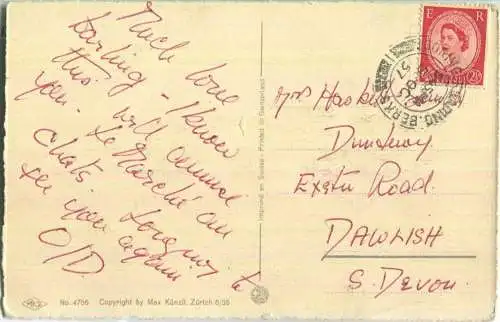 Much love
Darling - I know
this will amuse
you. Le Marché au
Chats. Longing to
see you again
O/D.
No. 4756 Copyright by Max Künzli, Zürich 6/36
Imprimé en Suisse - Printed in Switzerland
E R
2½D
READING. BERKS
Mrs Haskell
Dunsway
Exeter Road.
DAWLISH
S. Devon.